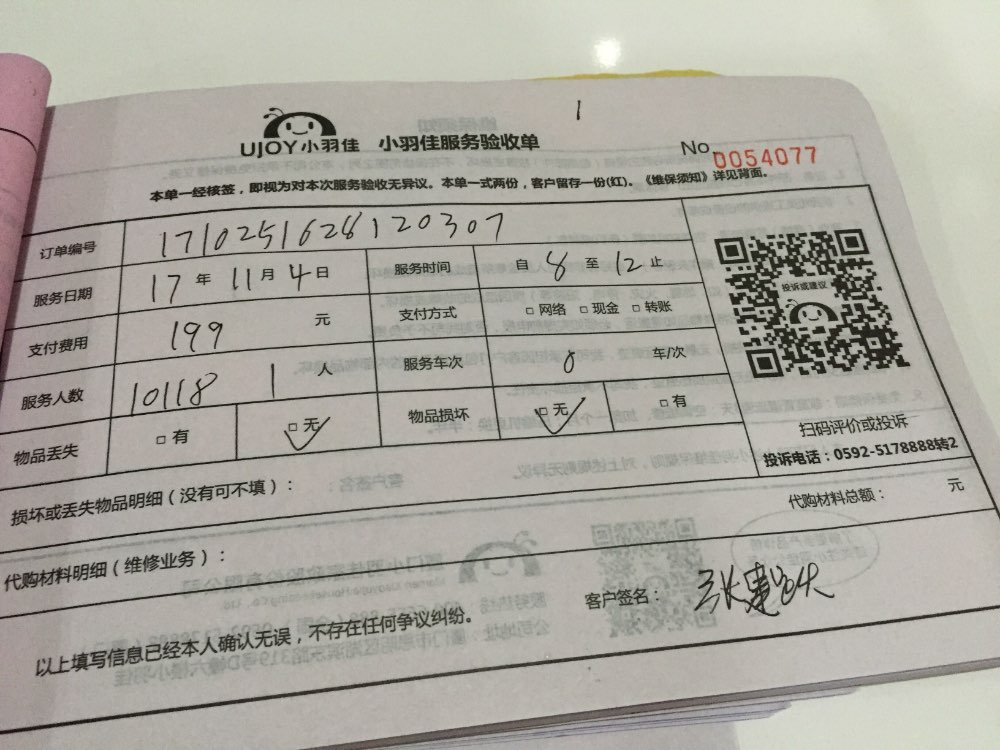 1
UJOY小羽佳 小羽佳服务验收单
No 0054077
本单一经核签，即视为对本次服务验收无异议。本单一式两份，客户留存一份(红)。《维保须知》详见背面。
订单编号 171025162812030​7
服务日期 17 年 11 月 4 日 服务时间 自 8 至 12 止
支付费用 199 元 支付方式 □ 网络 □ 现金 □ 转账
服务人数 10118 1 人 服务车次 0 车/次
物品丢失 □ 有 □ 无 物品损坏 □ 无 □ 有
投诉或建议
扫码评价或投诉
投诉电话：0592-5178888转2
损坏或丢失物品明细（没有可不填）：
代购材料总额： 元
代购材料明细（维修业务）：
客户签名：
以上填写信息已经本人确认无误，不存在任何争议纠纷。